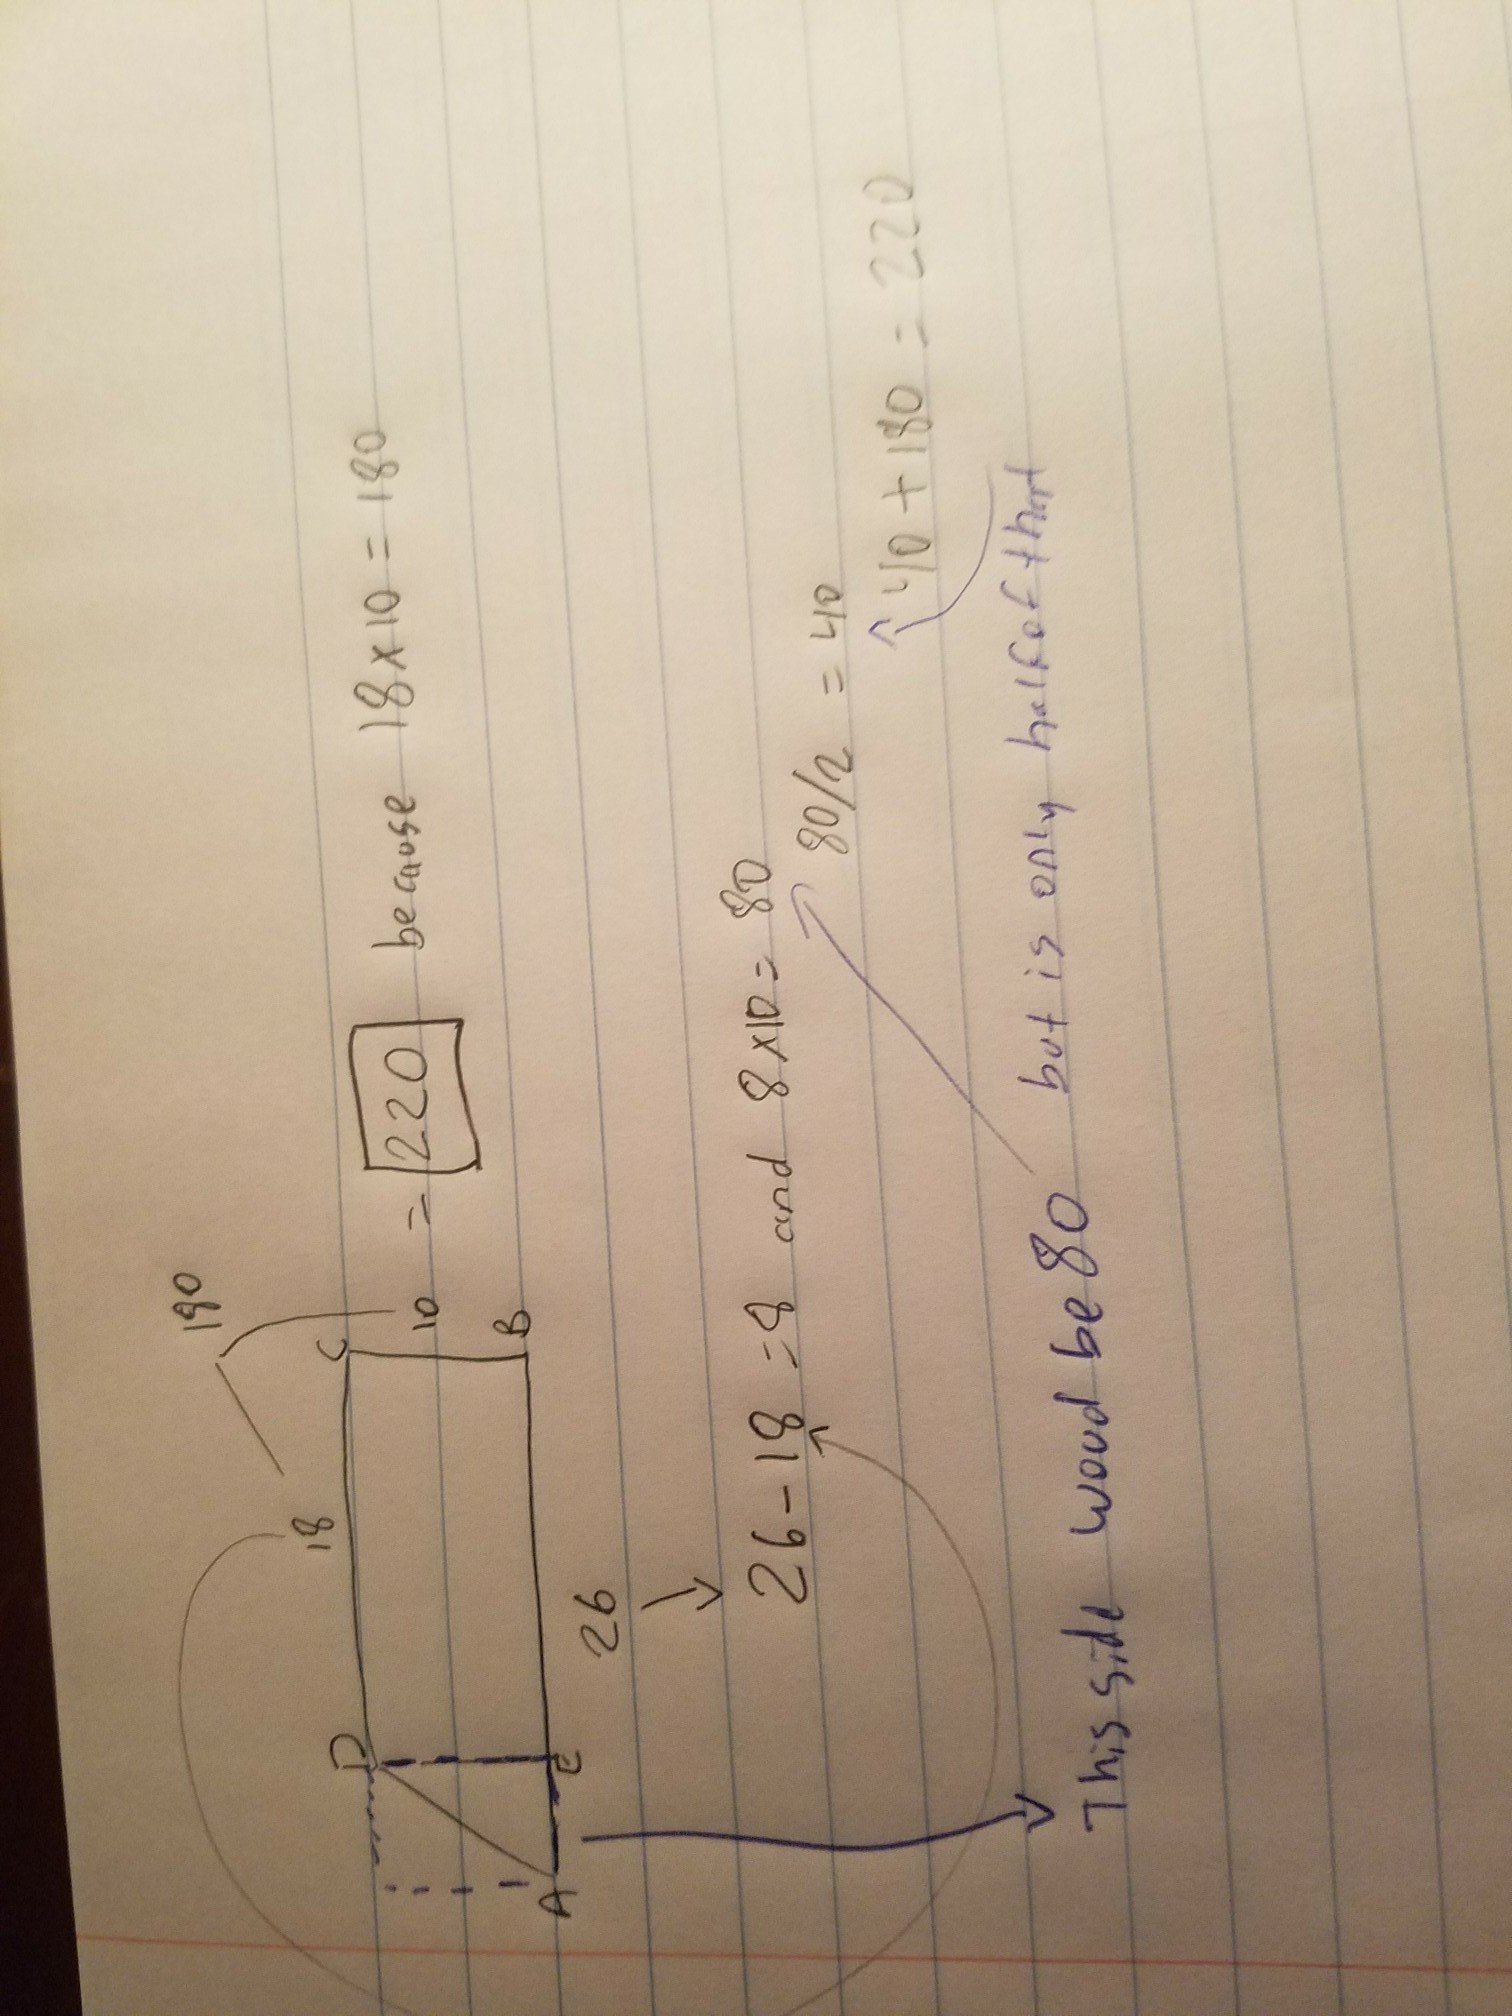 180
18
D
C
10
= 220 because 18x10 = 180
A
E
B
26
26-18 = 8 and 8x10 = 80
80/2 = 40
40 + 180 = 220
This side woud be 80 but is only half of that